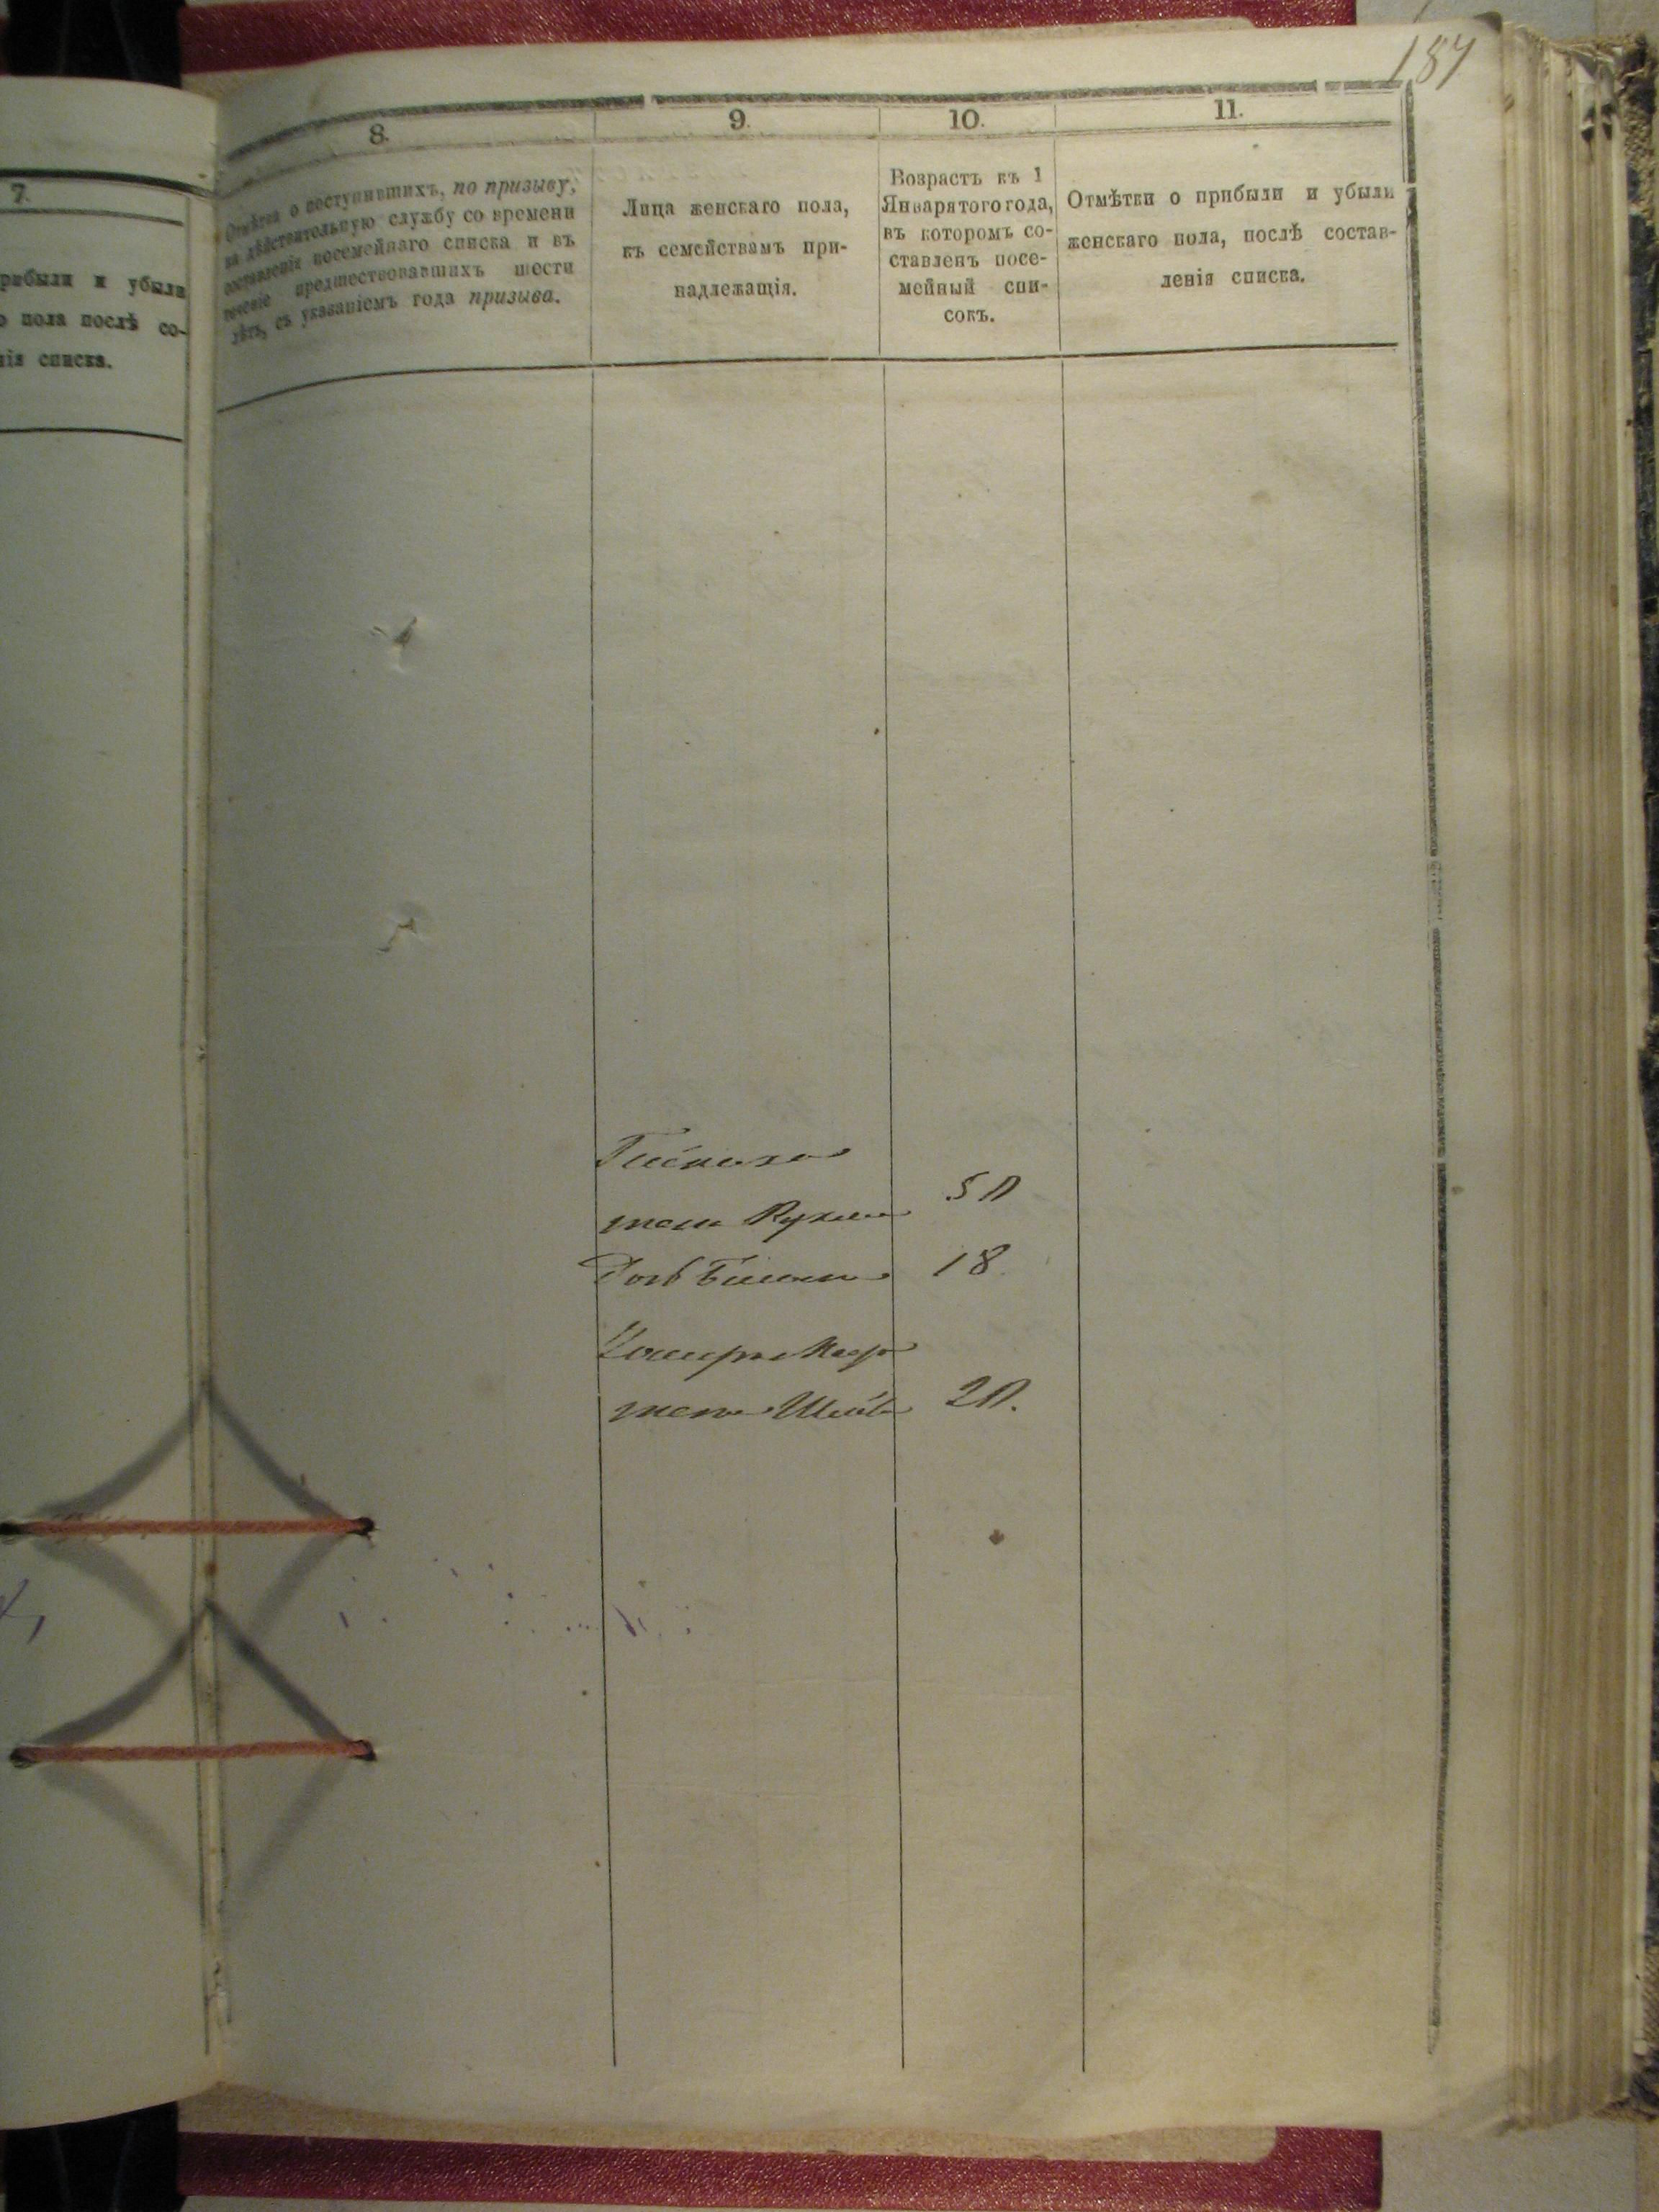 187
7.
рибыли и убыли
о пола послѣ со-
нія списка.
8.
Отмѣтки о поступившихъ, по призыву,
на дѣйствительную службу со времени
составленія посемейнаго списка и въ
теченіе предшествовавшихъ шести
лѣтъ, съ указаніемъ года призыва.
9.
Лица женскаго пола,
къ семействамъ при-
надлежащія.
10.
Возрастъ къ 1
Января того года,
въ которомъ со-
ставленъ посе-
мейный спи-
сокъ.
11.
Отмѣтки о прибыли и убыли
женскаго пола, послѣ состав-
ленія списка.
жена 50
18
жена 20.